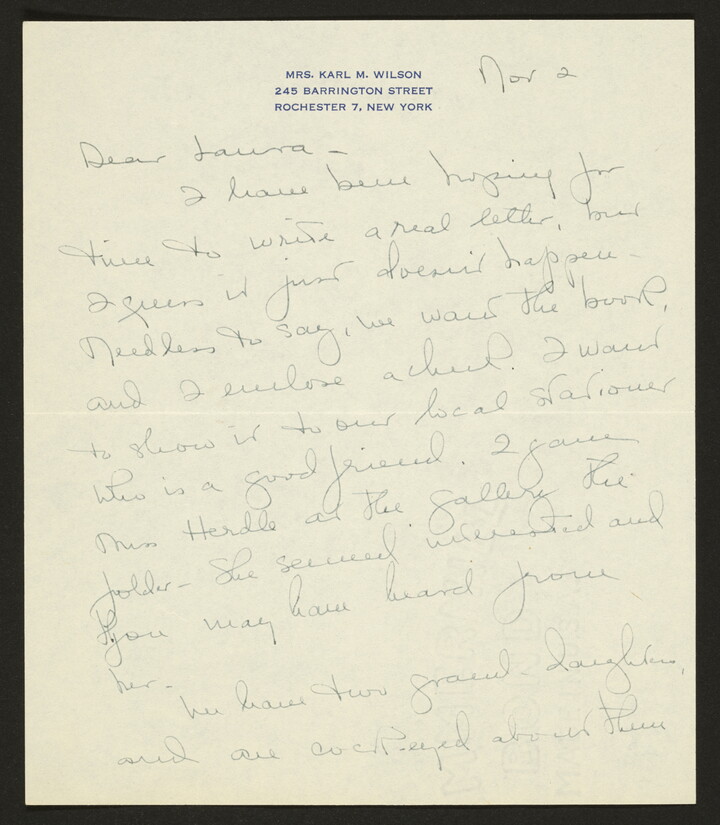 MRS. KARL M. WILSON
245 BARRINGTON STREET
ROCHESTER 7, NEW YORK
Nov 2
Dear Laura -
I have been hoping for
time to write a real letter, but
I guess it just doesn't happen -
Needless to say, we want the book,
and I enclose a check. I want
to show it to our local stationer
who is a good friend. I gave
Miss Herdle at the gallery the
folder - She seemed interested and
you may have heard from
her -
We have two grand-daughters,
and are cock-eyed about them